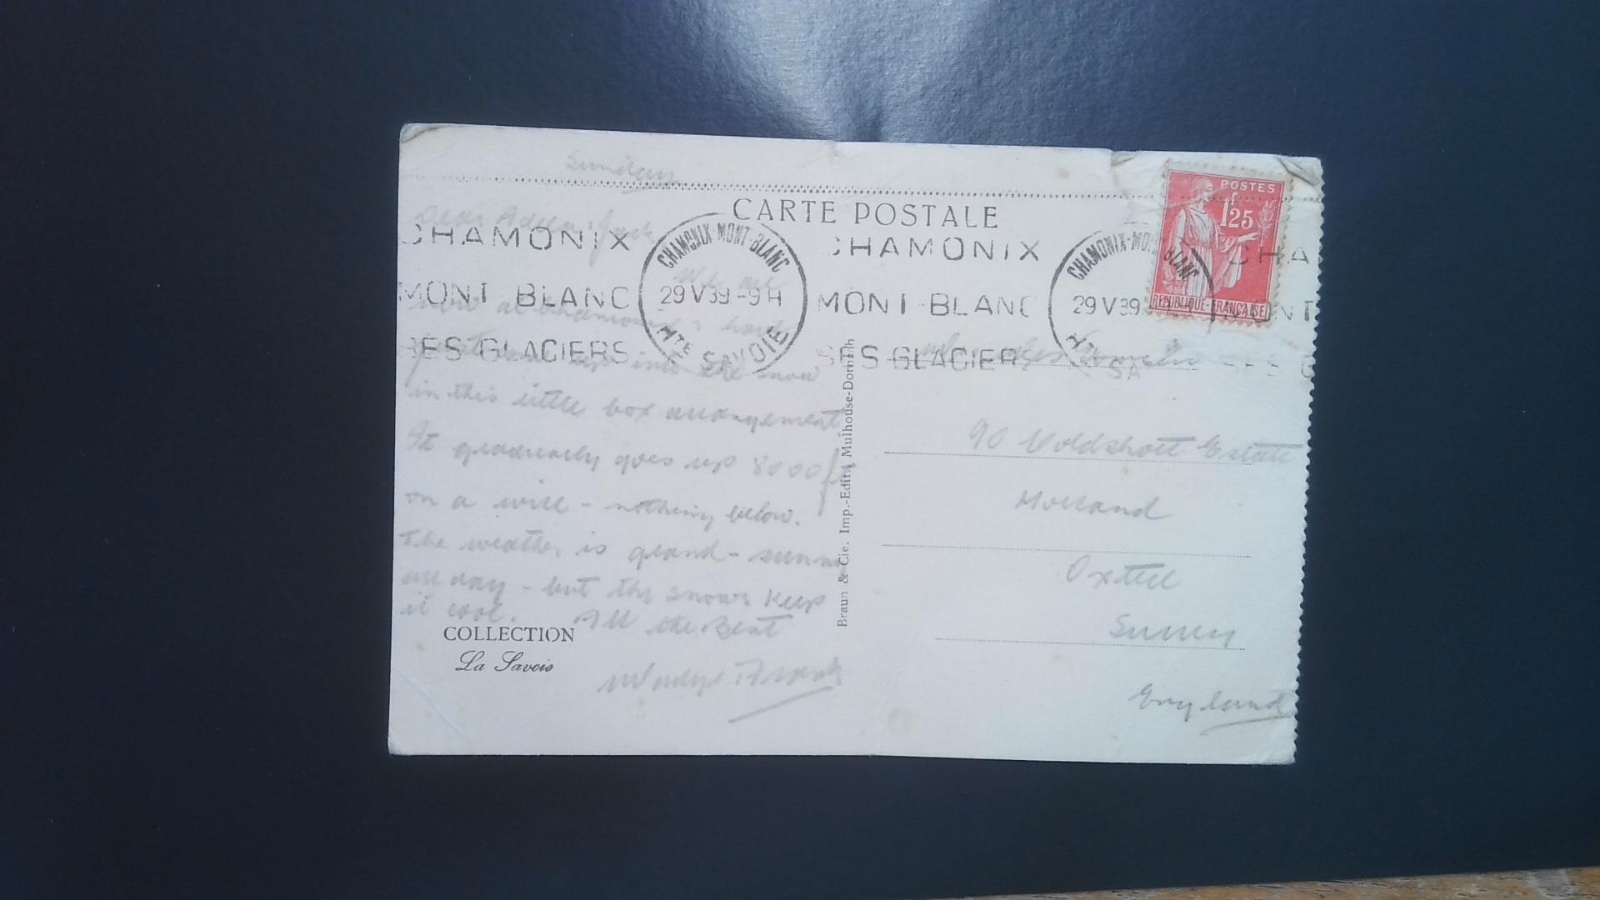 Sunday
CARTE POSTALE
POSTES
1F25
REPUBLIQUE-FRANÇAISE
Dear
CHAMONIX
MONT BLANC
SES GLACIERS
CHAMONIX-MONT-BLANC
29 V 39 -9 H
HTE SAVOIE
CHAMONIX
MONT-BLANC
SES GLACIERS
CHAMONIX-MO BLANC
29 V 39
HTE SA
CHA
ONT
We are
now at Chamonix & have
just been up into the snow
in this little box arrangement
It gradually goes up 8000 ft
on a wire - nothing below.
The weather is grand - sunny
all day - but the snows keep
it cool. All the Best
Frank
COLLECTION
La Savoie
Braun & Cie. Imp.-Edit. Mulhouse-Dornach
90 Estate
Holland
Oxted
Surrey
England